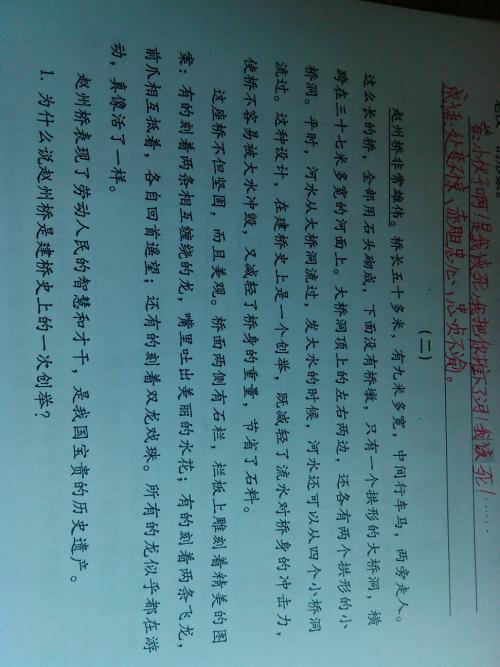 答:小伙子啊!是我该死,我把你推下河!我该死!……
成语:处变不惊、赤胆忠心、
(二)
赵州桥非常雄伟。桥长五十多米,有九米多宽,中间行车马,两旁走人。
这么长的桥,全部用石头砌成,下面没有桥墩,只有一个拱形的大桥洞,横
跨在三十七米多宽的河面上。大桥洞顶上的左右两边,还各有两个拱形的小
桥洞。平时,河水从大桥洞流过,发大水的时候,河水还可以从四个小桥洞
流过。这种设计,在建桥史上是一个创举,既减轻了流水对桥身的冲击力,
使桥不容易被大水冲毁,又减轻了桥身的重量,节省了石料。
这座桥不但坚固,而且美观。桥面两侧有石栏,栏板上雕刻着精美的图
案:有的刻着两条相互缠绕的龙,嘴里吐出美丽的水花;有的刻着两条飞龙,
前爪相互抵着,各自回首遥望;还有的刻着双龙戏珠。所有的龙似乎都在游
动,真像活了一样。
赵州桥表现了劳动人民的智慧和才干,是我国宝贵的历史遗产。
1. 为什么说赵州桥是建桥史上的一次创举?